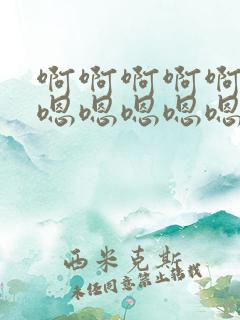 啊啊啊啊啊
嗯嗯嗯嗯嗯
西米克斯
未经同意禁止转载